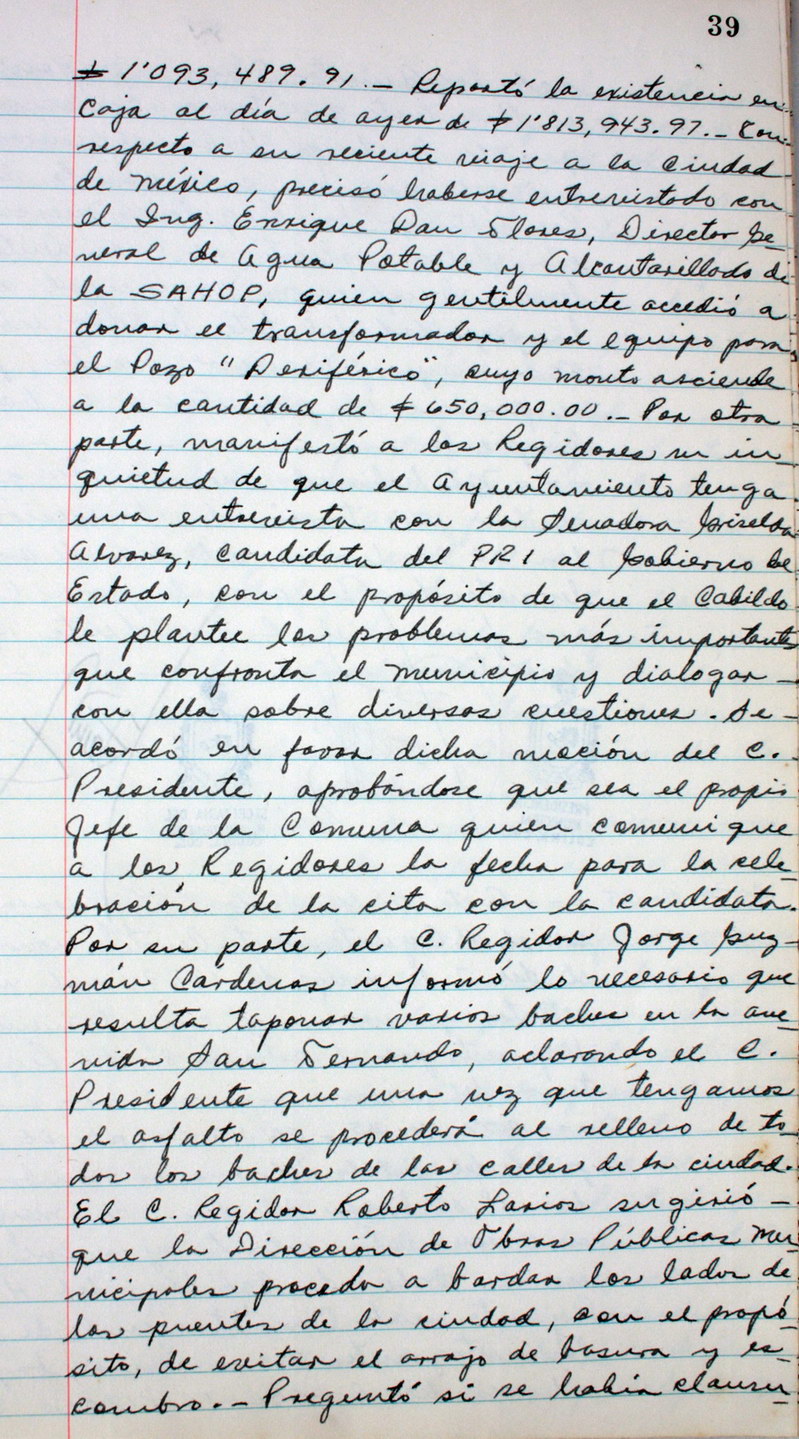 39
$ 1'093, 489. 91.- Reportó la existencia en
Caja al día de ayer de $ 1'813, 943. 97.- Con
respecto a su reciente viaje a la Ciudad
de México, precisó haberse entrevistado con
el Ing. Enrique Dau Flores, Director Ge-
neral de Agua Potable y Alcantarillado de
la SAHOP, quien gentilmente accedió a
donar el transformador y el equipo para
el Pozo "Periférico", cuyo monto asciende
a la cantidad de $ 650,000.00.- Por otra
parte, manifestó a los Regidores su in-
quietud de que el Ayuntamiento tenga
una entrevista con la Senadora Griselda
Alvarez, candidata del PRI al Gobierno del
Estado, con el propósito de que el Cabildo
le plantee los problemas más importantes
que confronta el municipio y dialogar -
con ella sobre diversas cuestiones. Se -
acordó en favor dicha moción del C. -
Presidente, aprobándose que sea el propio
Jefe de la Comuna quien comunique
a los Regidores la fecha para la cele-
bración de la cita con la candidata.
Por su parte, el C. Regidor Jorge Guz-
mán Cárdenas informó lo necesario que
resulta taponar varios baches en la ave-
nida San Fernando, aclarando el C.
Presidente que una vez que tengamos
el asfalto se procederá al relleno de to-
dos los baches de las calles de la ciudad.
El C. Regidor Roberto Larios sugirió -
que la Dirección de Obras Públicas Mu-
nicipales proceda a bardar los lados de
los puentes de la ciudad, con el propó-
sito, de evitar el arrojo de basura y es-
combro.- Preguntó si se había clausu-